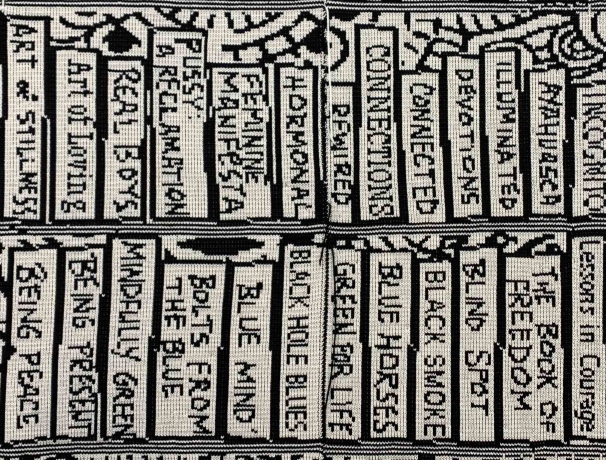 ART of STILLNESS
Art of Loving
REAL BOYS
PUSSY:
A RECLAMATION
FEMININE
MANIFESTA
HORMONAL
REWIRED
CONNECTIONS
CONNECTED
DEVOTIONS
ILLUMINATED
INCOGNITO
BEING PEACE
BEING PRESENT
MINDFULLY GREEN
BOLTS FROM
THE BLUE
BLUE MIND
BLACK HOLE BLUES
GREEN FOR LIFE
BLUE HORSES
BLACK SMOKE
BLIND SPOT
THE BOOK OF
FREEDOM
Lessons in Courage